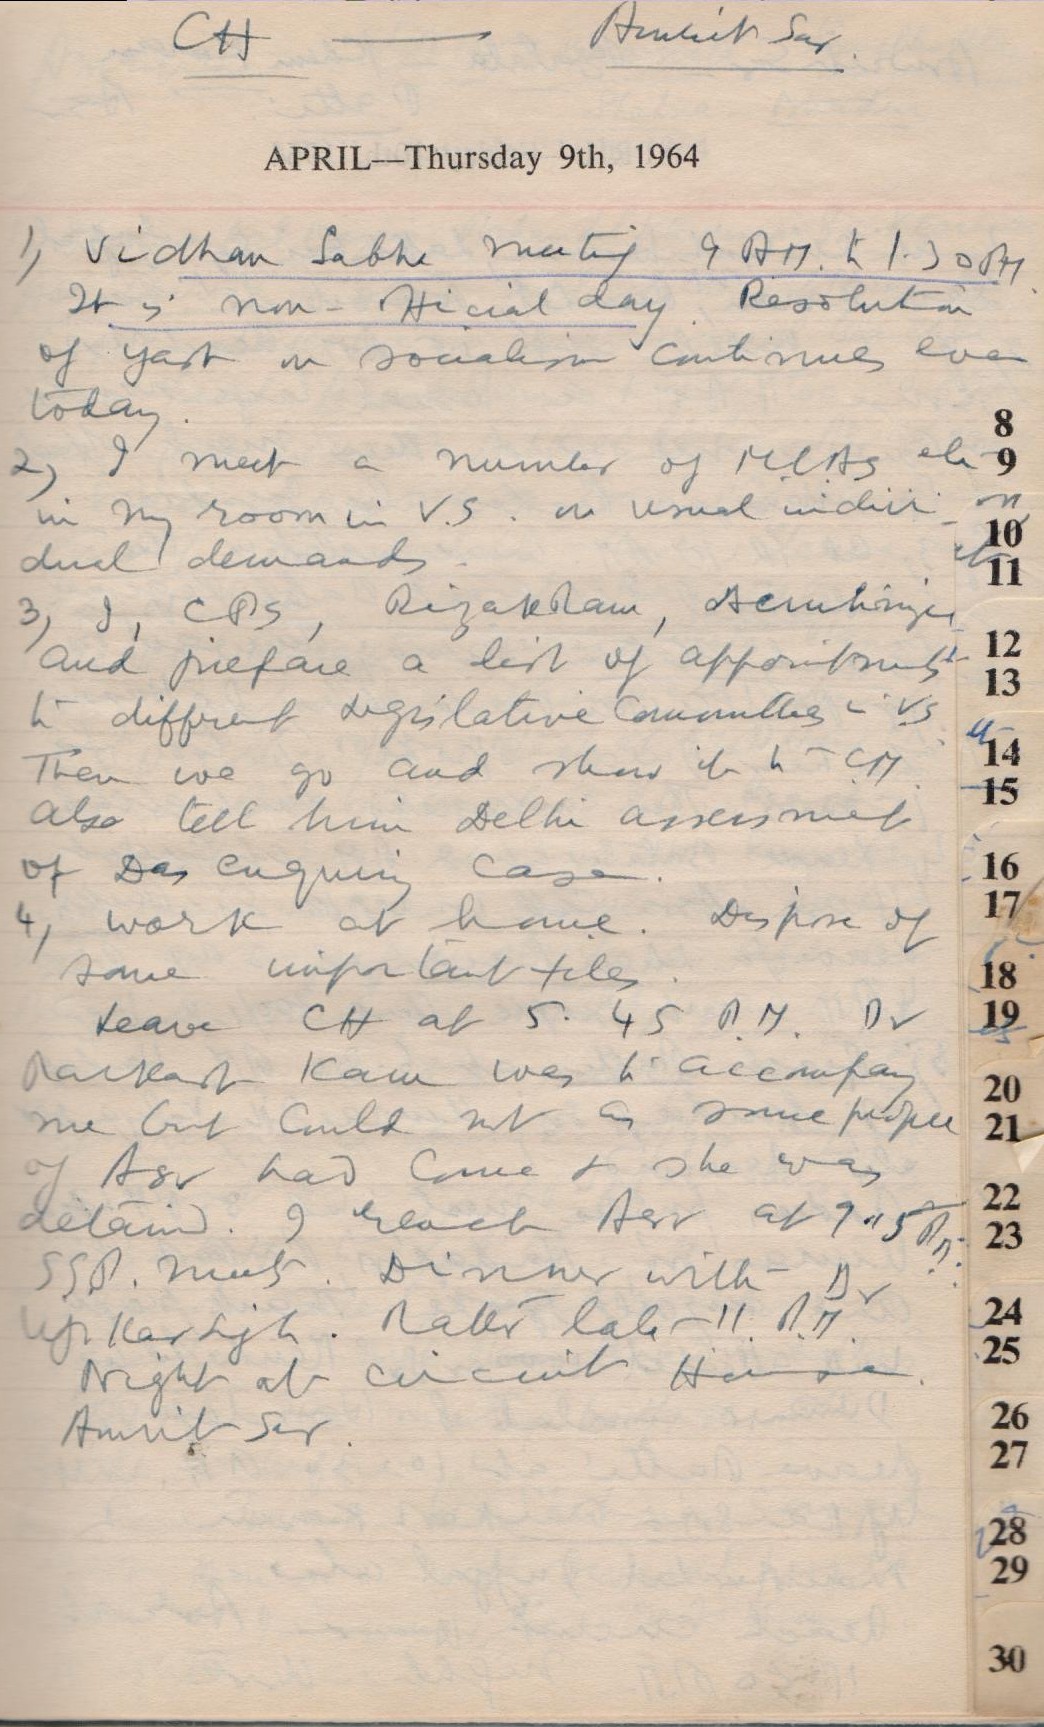 CH — Amrit Sar.
APRIL—Thursday 9th, 1964
1, Vidhan Sabha meeting 9 AM. to 1.30 PM.
It is non-official day. Resolution
of yast on socialism continues even
today.
2, I meet a number of MLAs etc
in my room in V.S. on usual indivi
dual demands.
3, I, CPS, Rizak Ram, scrutinize
and prepare a list of appointments
to different Legislative Committees in VS
Then we go and show it to CM.
also tell him Delhi assessment
of Das enquiry case.
4, work at home. Dispose of
some important files.
Leave CH at 5.45 P.M. Dr
Parkash Kaur was to accompany
me but could not as some people
of Asr had come & she was
detained. I reach Asr at 9.45 P.M.
SSP. meets. Dinner with Dr
Upkar Sigh. Rather late - 11. P.M.
Night at circuit House.
Amrit Sar.
8
9
10
11
12
13
14
15
16
17
18
19
20
21
22
23
24
25
26
27
28
29
30